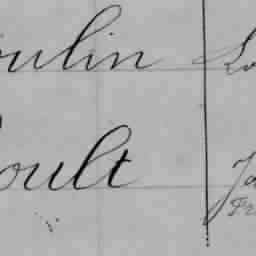 oulin Lo
oult Ja
Fr